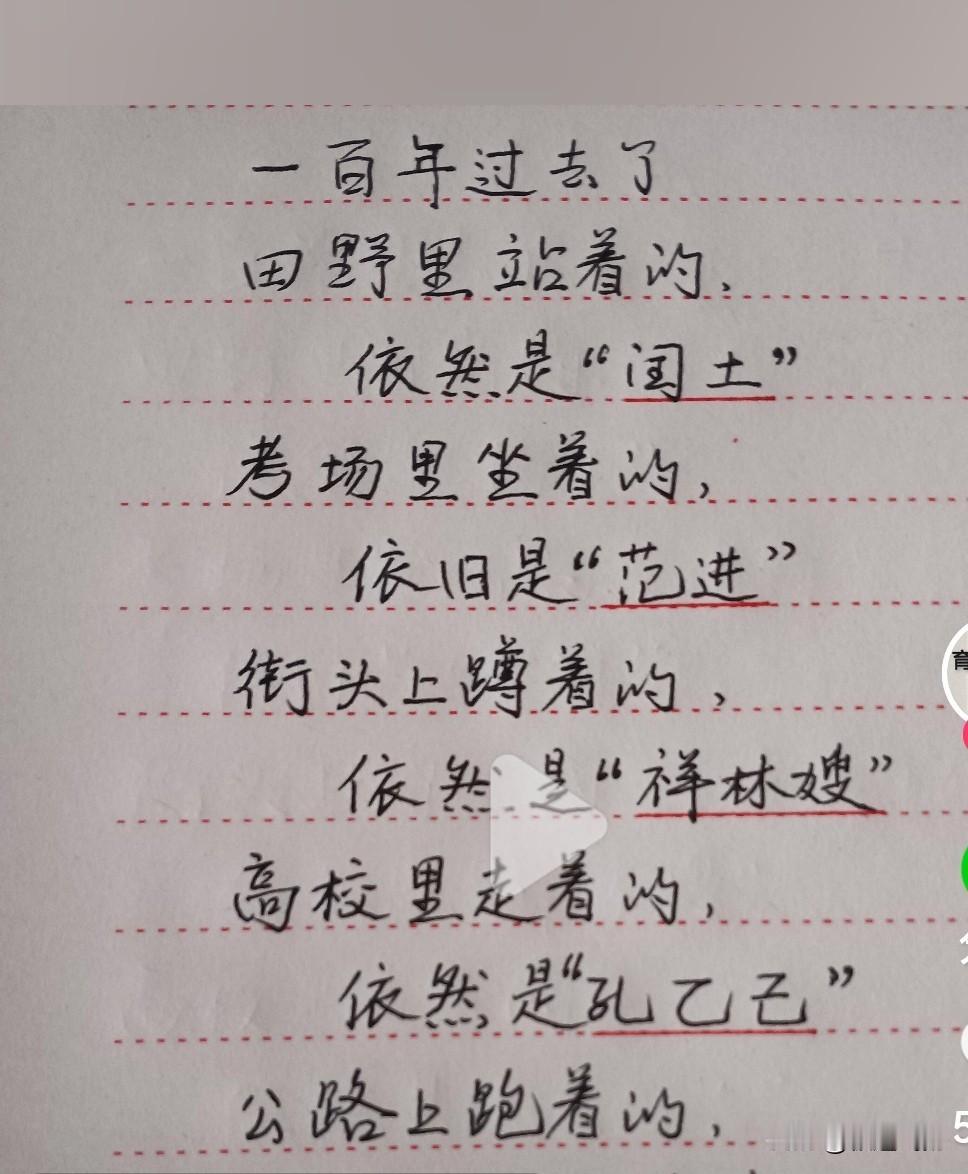 一百年过去了
田野里站着的，
依然是“闰土”
考场里坐着的，
依旧是“范进”
街头上蹲着的，
依然是“祥林嫂”
高校里走着的，
依然是“孔乙己”
公路上跑着的，
育
5